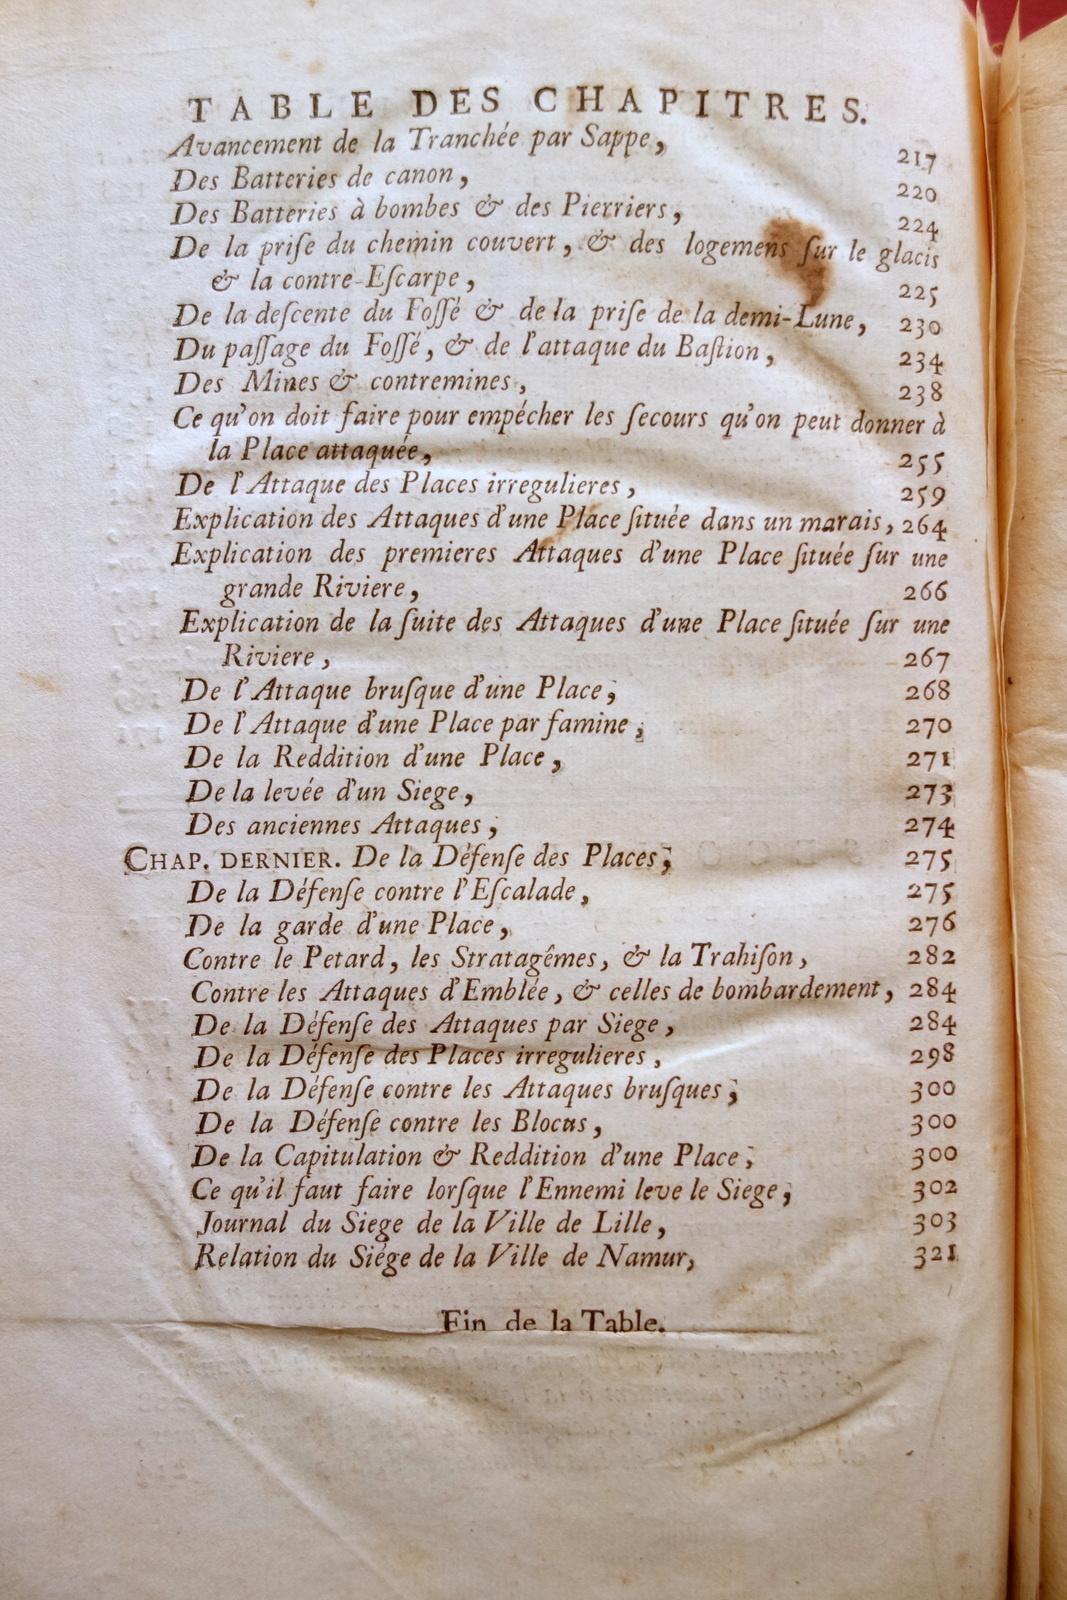 TABLE DES CHAPITRES.
Avancement de la Tranchée par Sappe, 217
Des Batteries de canon, 220
Des Batteries à bombes & des Pierriers, 224
De la priſe du chemin couvert, & des logemens ſur le glacis
& la contre-Eſcarpe, 225
De la deſcente du Foſſé & de la priſe de la demi-Lune, 230
Du paſſage du Foſſé, & de l'attaque du Baſtion, 234
Des Mines & contremines, 238
Ce qu'on doit faire pour empécher les ſecours qu'on peut donner à
la Place attaquée, 255
De l'Attaque des Places irregulieres, 259
Explication des Attaques d'une Place ſituée dans un marais, 264
Explication des premieres Attaques d'une Place ſituée ſur une
grande Riviere, 266
Explication de la ſuite des Attaques d'une Place ſituée ſur une
Riviere, 267
De l'Attaque bruſque d'une Place, 268
De l'Attaque d'une Place par famine, 270
De la Reddition d'une Place, 271
De la levée d'un Siege, 273
Des anciennes Attaques, 274
CHAP. DERNIER. De la Défenſe des Places, 275
De la Défenſe contre l'Eſcalade, 275
De la garde d'une Place, 276
Contre le Petard, les Stratagêmes, & la Trahiſon, 282
Contre les Attaques d'Emblée, & celles de bombardement, 284
De la Défenſe des Attaques par Siege, 284
De la Défenſe des Places irregulieres, 298
De la Défenſe contre les Attaques bruſques, 300
De la Défenſe contre les Blocus, 300
De la Capitulation & Reddition d'une Place, 300
Ce qu'il faut faire lorſque l'Ennemi leve le Siege, 302
Journal du Siege de la Ville de Lille, 303
Relation du Siége de la Ville de Namur, 321
Fin de la Table.